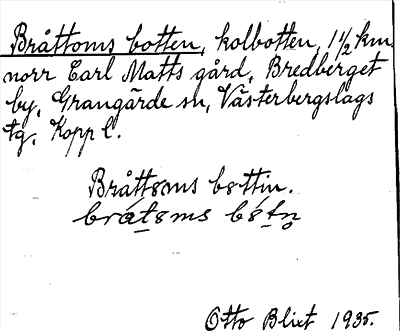 Bråttoms botten, kolbotten, 1½ km
norr Carl Matts gård, Bredberget
by, Grangärde sn, Västerbergslags
tg. Kopp l.
Bråttoms bottin.
Otto Blixt 1935.